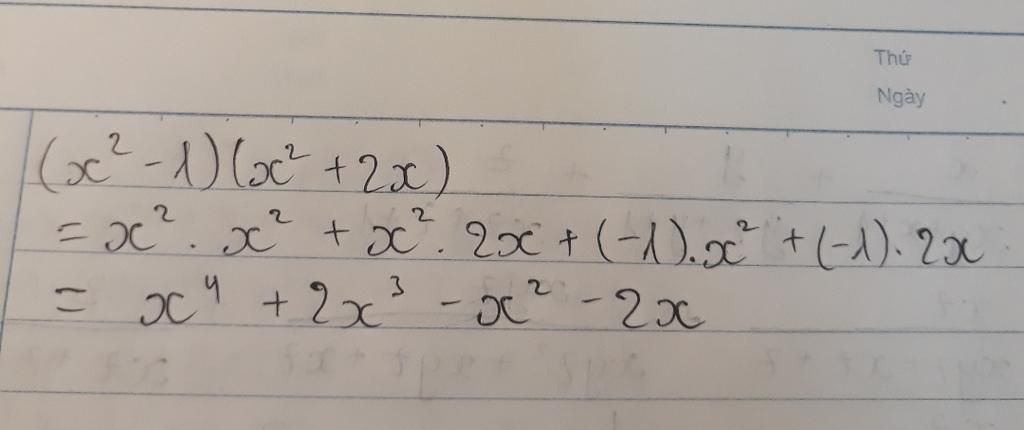 Thứ
Ngày
(x² - 1)(x² + 2x)
= x² . x² + x² . 2x + (-1).x² + (-1). 2x
= x⁴ + 2x³ - x² - 2x